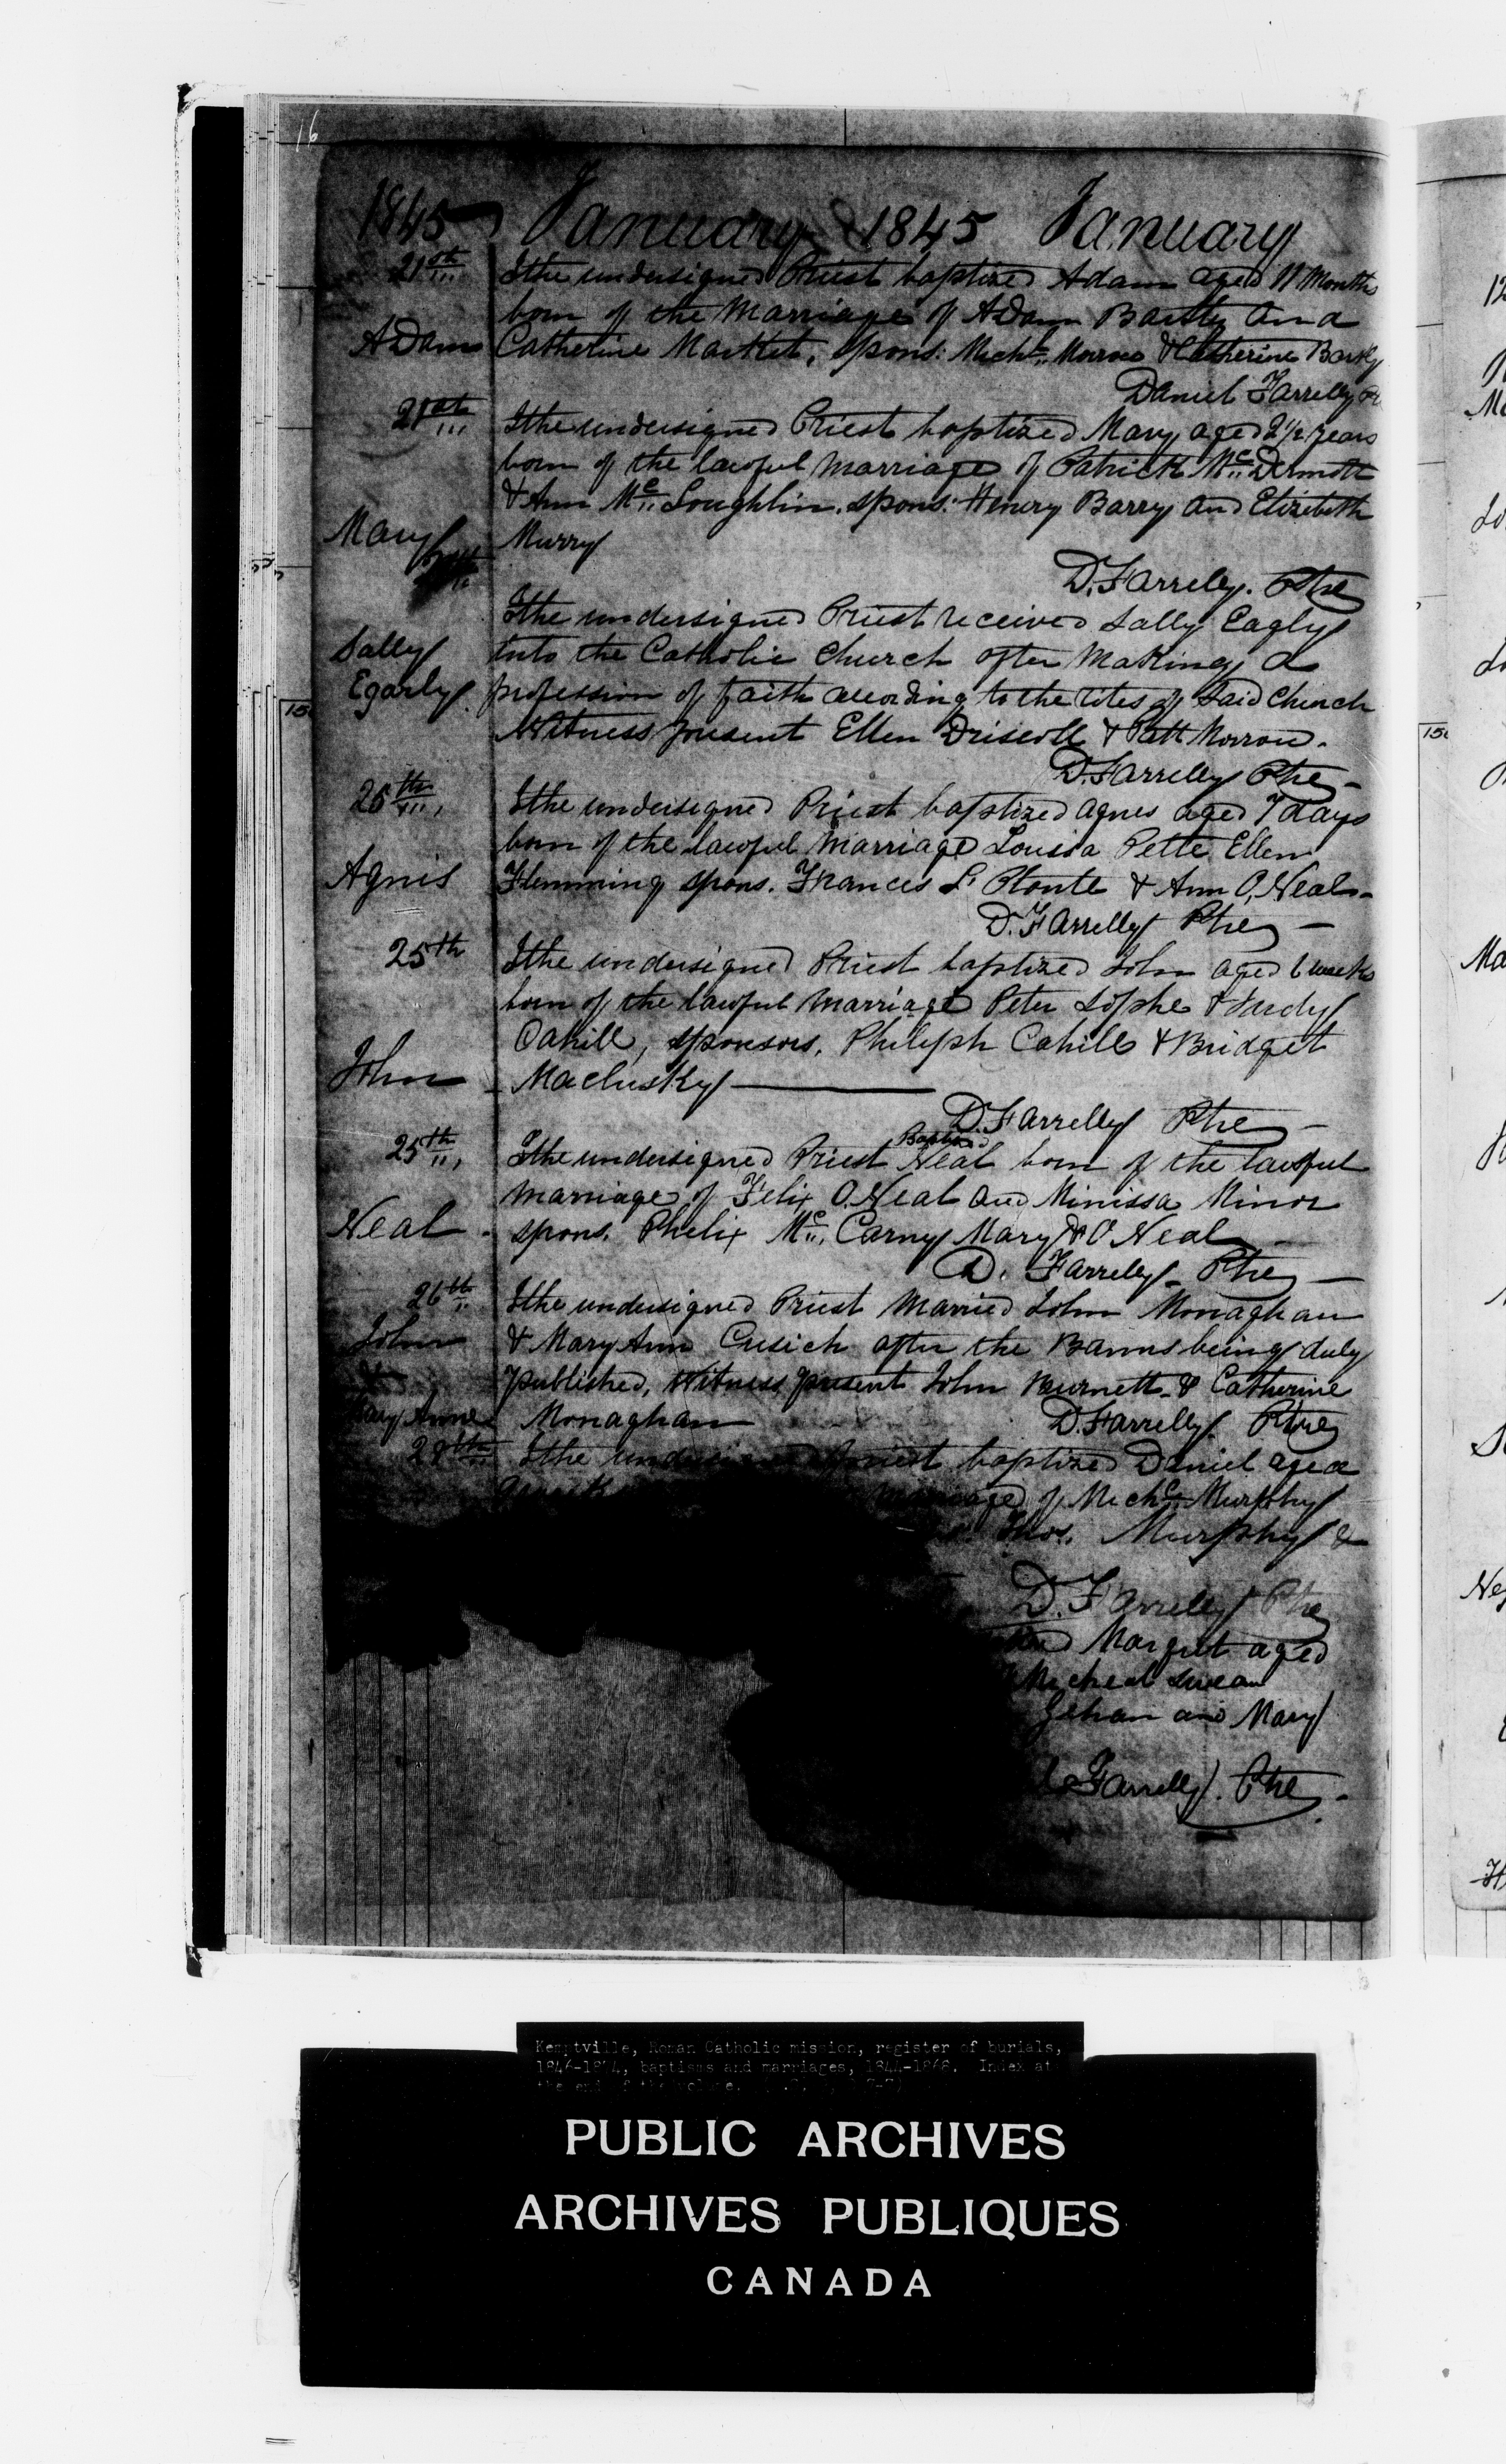 16
1845 January 1845 January
21st I the undersigned Priest baptized Adam aged 11 Months
born of the Marriage of Adam Bartly and
Adam Catherine Market, spons: Michl. Morrow & Catherine Bartly
Daniel Farrelly
21st I the undersigned Priest baptized Mary aged 2 1/2 years
born of the lawful marriage of Patrick Mc Dermott
& Ann Mc Loughlin. spons: Henry Barry and Elizebeth
Mary Murry
D. Farrelly. Ptre
I the undersigned Priest received Sally Eagly
Sally into the Catholic Church after Making a
Egarly. profession of faith according to the rites of said Church
Witness present Ellen Driscoll & Patt Morrow.
D. Farrelly Ptre
25th I the undersigned Priest baptized Agnes aged 7 days
born of the lawful Marriage Louisa Pette Ellen
Agnis Flemming spons. Frances Plante & Ann O,Neal
D. Farrelly Ptre
25th I the undersigned Priest baptized John aged 6 weeks
born of the lawful Marriage Peter Lophe &
Cahill, sponsors, Philiph Cahill & Bridget
John Maclusky
D. Farrelly Ptre
Baptized
25th I the undersigned Priest Neal born of the lawful
marriage of Felix O,Neal and Minissa Minor
Neal spons. Phelix Mc. Carny Mary O Neal
D. Farreley Ptre
26th I the undersigned Priest Married John Monaghan
John & Mary Ann Cusich after the Banns being duly
& published, Witness present John Burnett & Catherine
Mary Anne Monaghan D. Farrelly. Ptre
28th I the undersigned priest baptized Daniel aged
marriage of Michl. Murphy
Thos. Murphy &
D. Farrelly Ptre
Margret aged
Micheal
and Mary
Farrelly. Ptre
Kemptville, Roman Catholic mission, register of burials,
baptisms and marriages, 1844-1868. Index at
the end of the volume.
PUBLIC ARCHIVES
ARCHIVES PUBLIQUES
CANADA